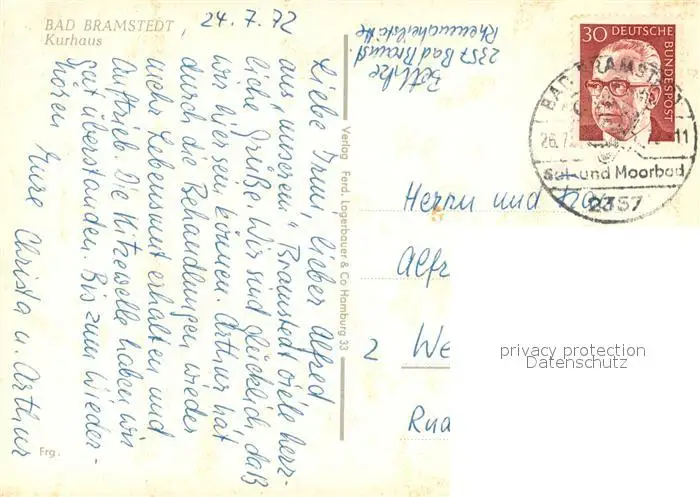 BAD BRAMSTEDT
Kurhaus
24.7.72
Liebe Irmi, lieber Alfred
aus "unserem" Bramstedt viele herz-
liche Grüße. Wir sind glücklich, daß
wir hier sein können. Arthur hat
durch die Behandlungen wieder
mehr Lebensmut erhalten und
Auftrieb. Die Hitzewelle haben wir
gut überstanden. Bis zum Wieder-
hören Eure Christa u. Arthur
Frg.
Verlag Ferd. Lagerbauer & Co Hamburg 33
2357 Bad Bramst.
Rheumaheilstätte
30 DEUTSCHE
BUNDESPOST
BAD BRAMSTEDT
26.7. 72 11
Sol- und Moorbad
2357
Herrn und Frau
Alfr
2 We
Rud
privacy protection
Datenschutz